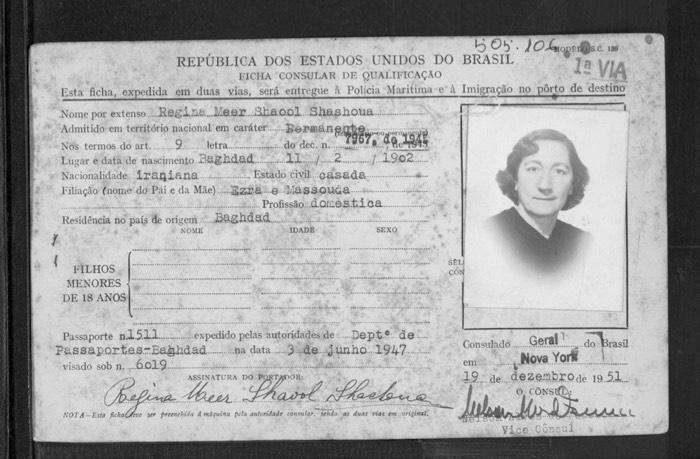 505.106
MODÊLO S.C. 136
1a VIA
REPÚBLICA DOS ESTADOS UNIDOS DO BRASIL
FICHA CONSULAR DE QUALIFICAÇÃO
Esta ficha, expedida em duas vias, será entregue à Polícia Marítima e à Imigração no pôrto de destino
Nome por extenso Regina Meer Shaool Shashoua
Admitido em território nacional em caráter Permanente
Nos termos do art. 9 letra do dec. n. 7967, de 1945
Lugar e data de nascimento Baghdad 11 / 2 / 1902
Nacionalidade iraniana Estado civil casada
Filiação (nome do Pai e da Mãe) Ezra e Massouda
Profissão doméstica
Residência no país de origem Baghdad
NOME IDADE SEXO
FILHOS
MENORES
DE 18 ANOS
Passaporte n. 1511 expedido pelas autoridades de Deptº de
Passaportes-Baghdad na data 3 de junho 1947
visado sob n. 6019
ASSINATURA DO PORTADOR:
Regina Meer Shaool Shashoua
NOTA—Esta ficha deve ser preenchida à máquina pela autoridade consular, sendo as duas vias em original.
Consulado Geral do Brasil
em Nova York
19 de dezembro de 1951
O CÔNSUL:
Vice Cônsul